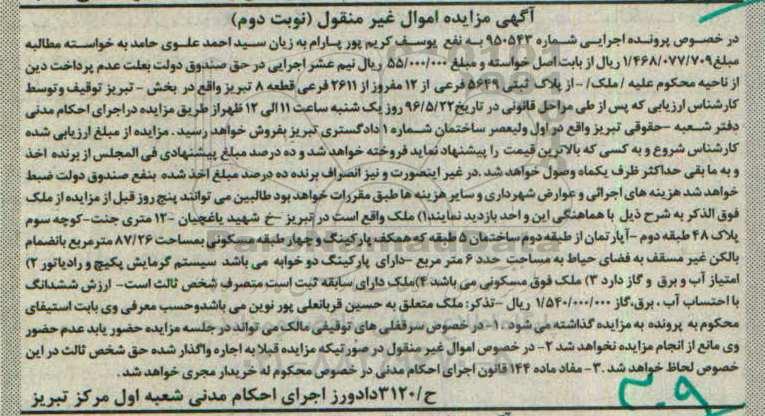 آگهی مزایده اموال غیر منقول (نوبت دوم)
در خصوص پرونده اجرایی شماره ۹۵۰۵۴۳ به نفع یوسف کریم پور پارام به زیان سید احمد علوی حامد به خواسته مطالبه
مبلغ ۱/۴۶۸/۰۷۷/۷۰۹ ریال از بابت اصل خواسته و مبلغ ۵۵/۰۰۰/۰۰۰ ریال نیم عشر اجرایی در حق صندوق دولت بعلت عدم پرداخت دین
از ناحیه محکوم علیه /ملک/- از پلاک ثبتی ۵۶۴۹ فرعی از ۱۲ مفروز از ۲۶۱۱ فرعی قطعه ۸ تبریز واقع در بخش - تبریز توقیف و توسط
کارشناس ارزیابی که پس از طی مراحل قانونی در تاریخ ۹۶/۵/۲۲ روز یک شنبه ساعت ۱۱ الی ۱۲ ظهر از طریق مزایده در اجرای احکام مدنی
دفتر شعبه -حقوقی تبریز واقع در اول ولیعصر ساختمان شماره ۱ دادگستری تبریز بفروش خواهد رسید. مزایده از مبلغ ارزیابی شده
کارشناس شروع و به کسی که بالاترین قیمت را پیشنهاد نماید فروخته خواهد شد و ده درصد مبلغ پیشنهادی فی المجلس از برنده اخذ
و به ما بقی حداکثر ظرف یکماه وصول خواهد شد .در غیر اینصورت و نیز انصراف برنده ده درصد مبلغ اخذ شده بنفع صندوق دولت ضبط
خواهد شد هزینه های اجرائی و عوارض شهرداری و سایر هزینه ها طبق مقررات خواهد بود طالبین می توانند پنج روز قبل از مزایده از ملک
فوق الذکر به شرح ذیل با هماهنگی این واحد بازدید نمایند۱) ملک واقع است در تبریز -خ شهید باغچیان -۱۲ متری جنت-کوچه سوم
پلاک ۴۸ طبقه دوم -آپارتمان از طبقه دوم ساختمان ۵ طبقه که همکف پارکینگ و چهار طبقه مسکونی بمساحت ۸۷/۲۶ مترمربع بانضمام
بالکن غیر مسقف به فضای حیاط به مساحت حدد ۶ متر مربع -دارای پارکینگ دو خوابه می باشد سیستم گرمایش پکیج و رادیاتور ۲)
امتیاز آب و برق و گاز دارد ۳) ملک فوق مسکونی می باشد ۴)ملک دارای سابقه ثبت است متصرف شخص ثالث است- ارزش ششدانگ
با احتساب آب ،برق،گاز ۱/۵۴۰/۰۰۰/۰۰۰ ریال -تذکر: ملک متعلق به حسین قربانعلی پور نوین می باشدوحسب معرفی وی بابت استیفای
محکوم به پرونده به مزایده گذاشته می شود. ۱- در خصوص سرقفلی های توقیفی مالک می تواند در جلسه مزایده حضور یابد عدم حضور
وی مانع از انجام مزایده نخواهد شد ۲- در خصوص اموال غیر منقول در صورتیکه مزایده قبلا به اجاره واگذار شده حق شخص ثالث در این
خصوص لحاظ خواهد شد .۳- مفاد ماده ۱۴۴ قانون اجرای احکام مدنی در خصوص محکوم له خریدار مجری خواهد شد.
ح/۳۱۲۰دادورز اجرای احکام مدنی شعبه اول مرکز تبریز